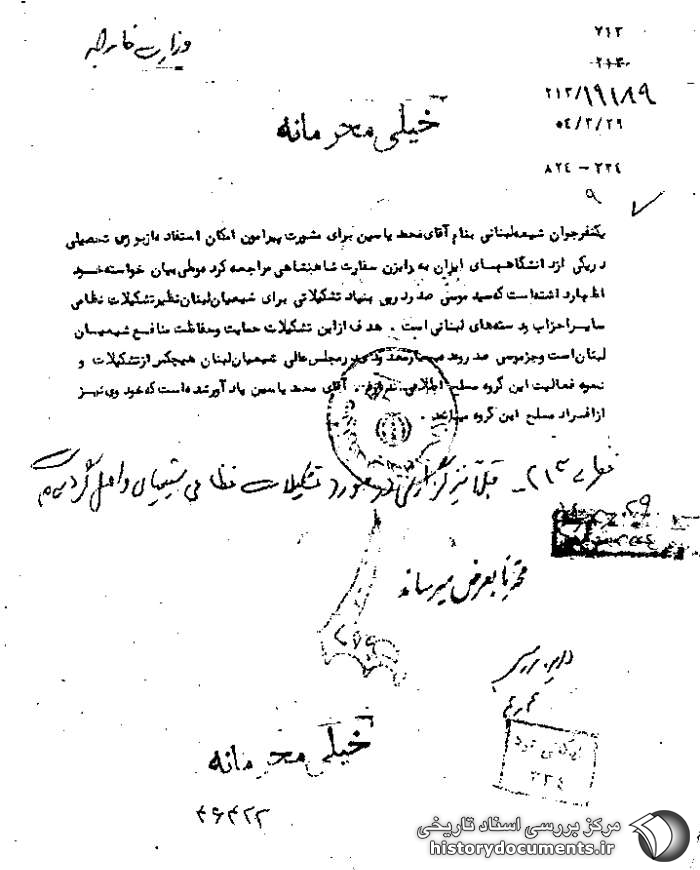 وزارت خارجه
۲۱۳
۲۱۳
۲۱۳/۱۹۱۸۹
۵٤/۳/۲۹
۸۲٤ – ۲۳٤
۹
خیلی محرمانه
یکنفر جوان شیعه لبنانی بنام آقای محمد یاسین برای مشورت پیرامون امکان استفاده از بورس تحصیلی
در یکی از دانشگاههای ایران به رایزن سفارت شاهنشاهی مراجعه کرد موطی بیان خواسته خود
اظهار داشته است که سید موسی صدر در پی بنیاد تشکیلاتی برای شیعیان لبنان نظیر تشکیلات نظامی
سایر احزاب و دسته های لبنانی است . هدف از این تشکیلات حمایت و حفاظت منافع شیعیان
لبنان است و جز موسی صدر و عده بسیار معدودی در مجلس عالی شیعیان لبنان هیچکس از تشکیلات و
نحوه فعالیت این گروه مسلح اطلاعی ندارد . آقای محمد یاسین یادآور شده است که خود وی نیز
از افراد مسلح این گروه میباشد .
نظریه ۲۱۳ـ قبلاً نیز گزارشی در مورد تشکیلات نظامی شیعیان واصل گردیده
۲۹
محترماً بعرض میرساند
بایگانی شود
۲۳٤
خیلی محرمانه
۳۶۳۲۲
مرکز بررسی اسناد تاریخی
historydocuments.ir